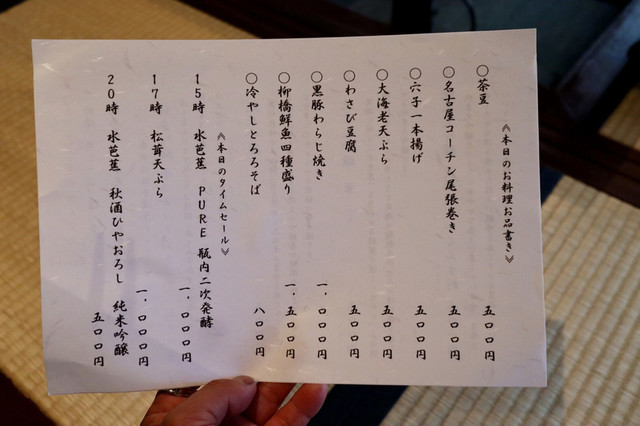 《本日のお料理お品書き》
〇茶豆 五〇〇円
〇名古屋コーチン尾張巻き 五〇〇円
〇穴子一本揚げ 五〇〇円
〇大海老天ぷら 五〇〇円
〇わさび豆腐 五〇〇円
〇黒豚わらじ焼き 一,〇〇〇円
〇柳橋鮮魚四種盛り 一,五〇〇円
〇冷やしとろろそば 八〇〇円
《本日のタイムセール》
15時 水芭蕉 PURE 瓶内二次発酵 一,〇〇〇円
17時 松茸天ぷら 一,〇〇〇円
20時 水芭蕉 秋酒ひやおろし 純米吟醸 五〇〇円